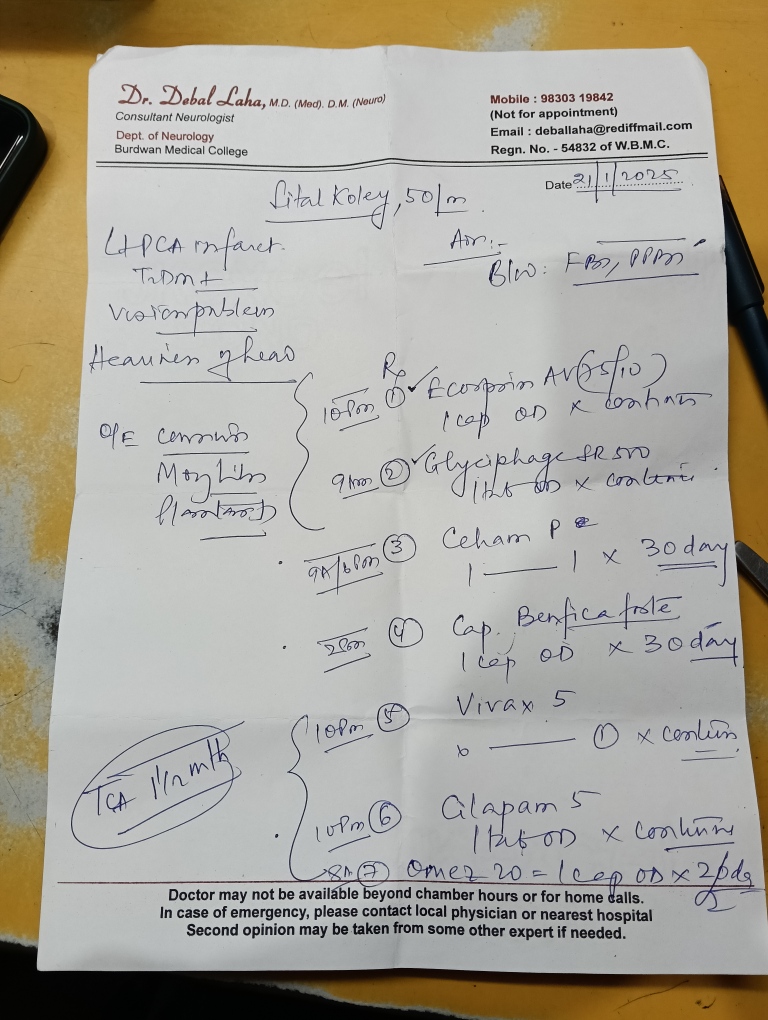 Dr. Debal Laha, M.D. (Med). D.M. (Neuro)
Consultant Neurologist
Dept. of Neurology
Burdwan Medical College
Mobile : 98303 19842
(Not for appointment)
Email : deballaha@rediffmail.com
Regn. No. - 54832 of W.B.M.C.
Date 21/1/2025
Sital Koley, 50/m
Lt PCA infarct.
T2DM+
Vision problem
Heaviness of head
O/E Conscious
Moving limbs
Adv:-
B/w: FBS, PPBS
Rx
10Pm ① Ecosprin AV (75/10)
1 cap OD x continue
9Am ② Glyciphage SR 500
1 tab OD x continue
9A/6Pm ③ Ceham P
1 — 1 x 30 day
2Pm ④ Cap. Benfica forte
1 cap OD x 30 day
10Pm ⑤ Vivax 5
— ① x contin
10Pm ⑥ Cilapam 5
1 tab OD x continue
8A ⑦ Omez 20 = 1 cap OD x
TCA 1½ mth
Doctor may not be available beyond chamber hours or for home calls.
In case of emergency, please contact local physician or nearest hospital
Second opinion may be taken from some other expert if needed.